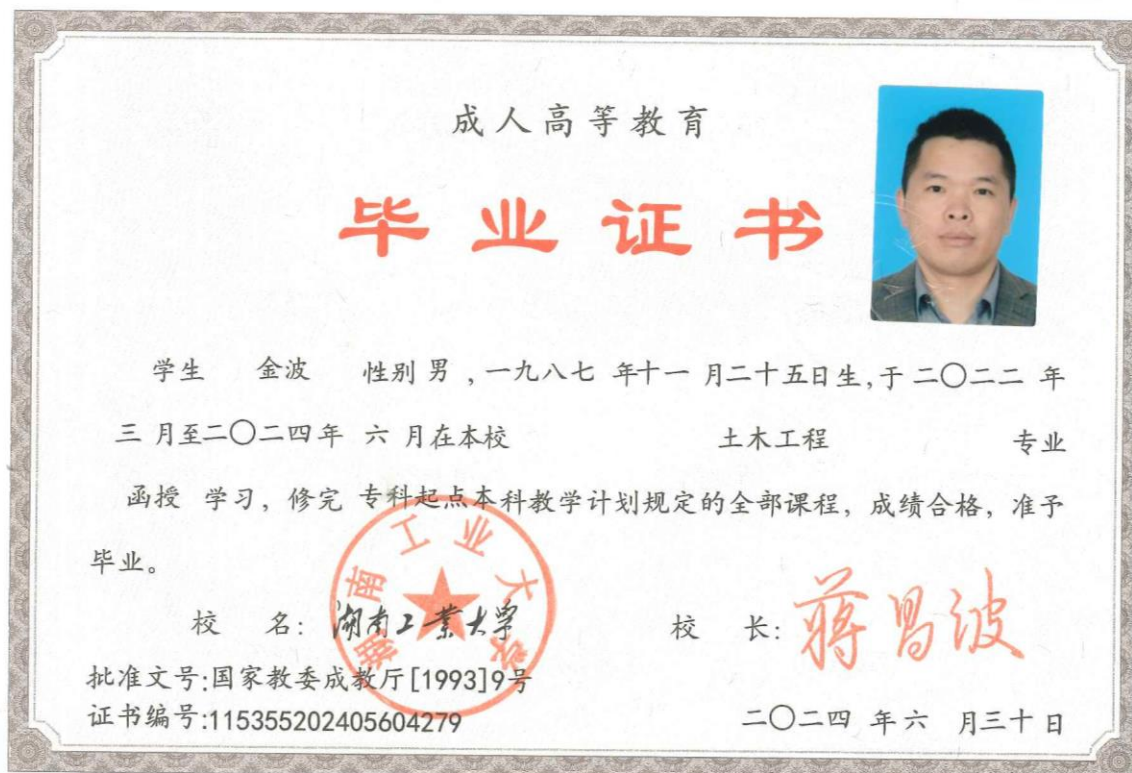 成人高等教育
毕业证书
学生 金波 性别 男 ,一九八七 年十一 月二十五日生,于 二〇二二 年
三 月至二〇二四年 六 月在本校 土木工程 专业
函授 学习, 修完 专科起点本科教学计划规定的全部课程, 成绩合格, 准予
毕业。
湖南工业大学
校 名: 湖南工業大学 校 长: 蒋昌波
批准文号:国家教委成教厅[1993]9号
证书编号:115355202405604279 二〇二四 年 六 月三十日